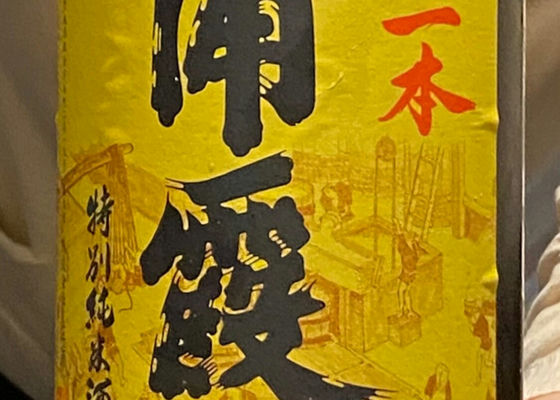 一本
浦霞
特別純米酒